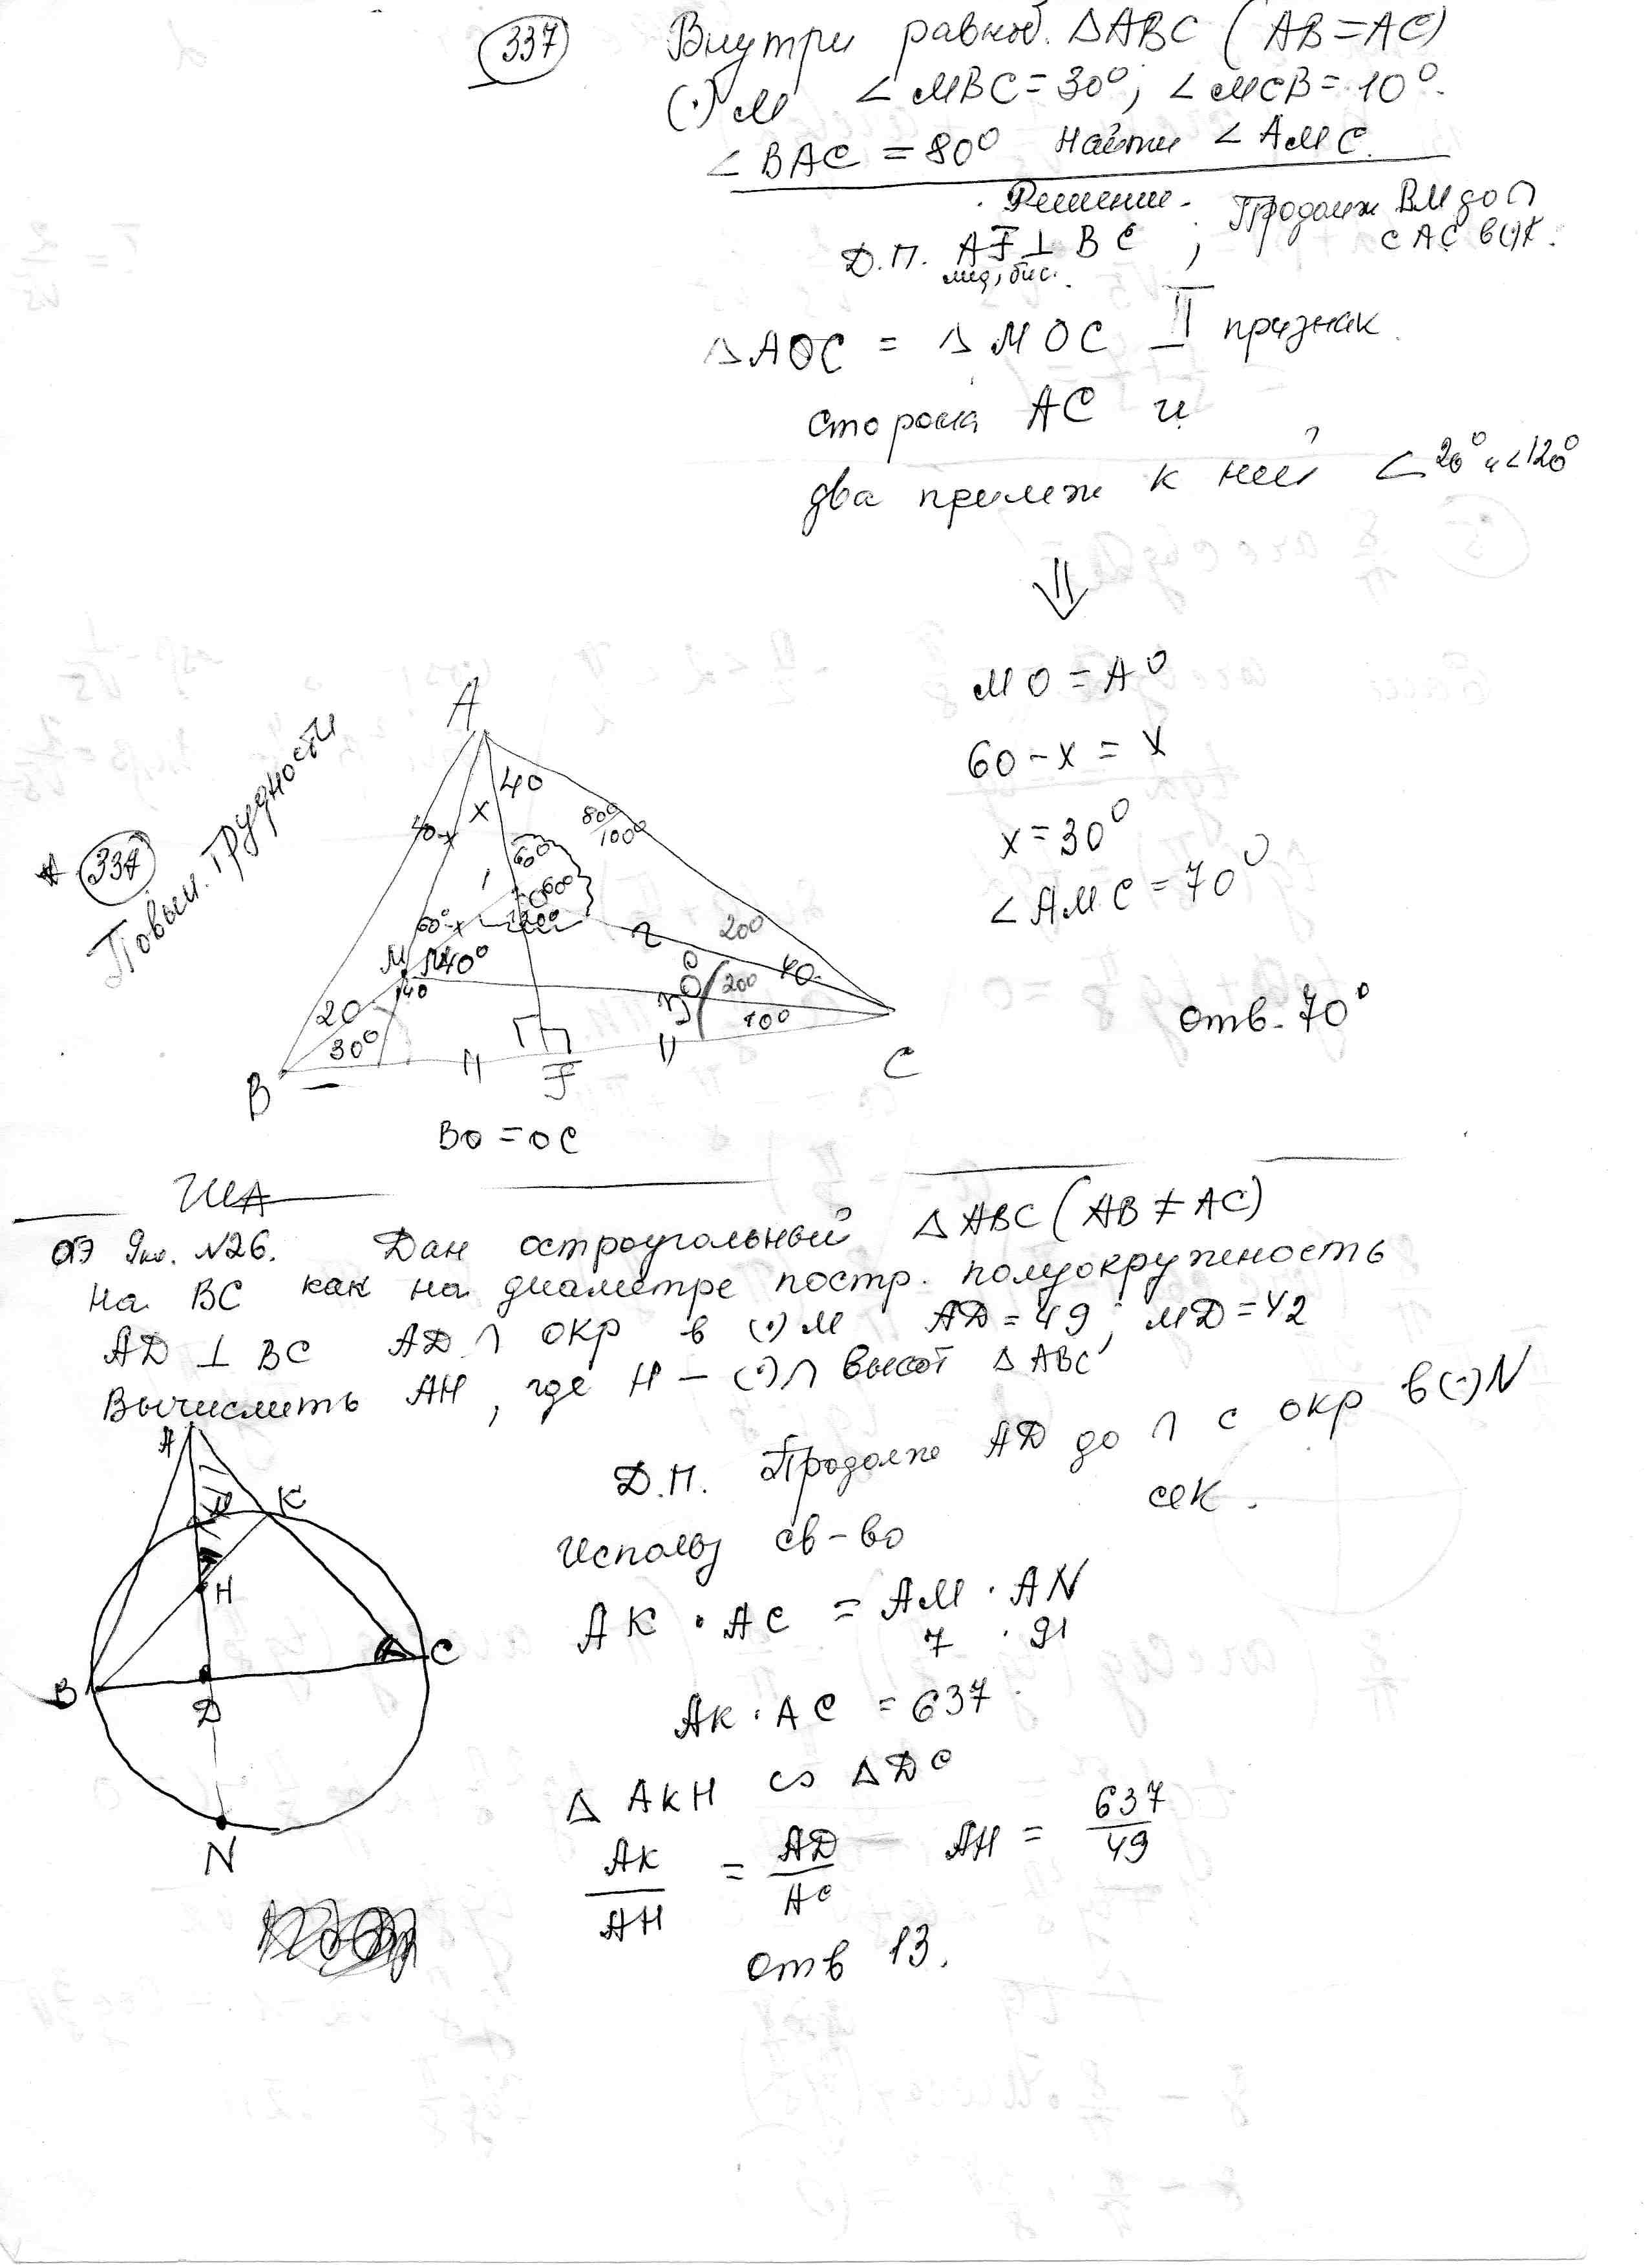 337
Внутри равноб. ΔABC (AB=AC)
(·) M ∠MBC=30°; ∠MCB=10°.
∠BAC=80° Найти ∠AMC.
Решение.
Д.П. AF⊥BC ; Продолж BM до ∩
мед, бис. с AC в(·)K.
ΔAOC = ΔMOC II признак.
сторона AC и
два прилеж к ней ∠20° и ∠120°
⇓
MO = AO
60-x = x
x=30°
∠AMC=70°
отв. 70°
* 337
Повыш. Трудности
A
40
x
40-x
80°/100°
60°
60°
120°
60°-x
20°
M
40°
140
20°
40
20
30°
10°
B
F
C
BO=OC
ОГЭ 9кл. N26. Дан остроугольный ΔABC (AB≠AC)
на BC как на диаметре постр. полуокружность
AD ⊥ BC AD ∩ окр в (·) M AD=49; MD=42
Вычислить AH, где H – (·)∩ высот ΔABC
Д.П. Продолж AD до ∩ с окр в(·)N
Использ св-во сек.
AK · AC = AM · AN
7 · 91
AK · AC = 637
Δ AKH ∽ ΔDC
AK/AH = AD/AC AH = 637/49
отв 13.
A
M
K
H
B
D
C
N